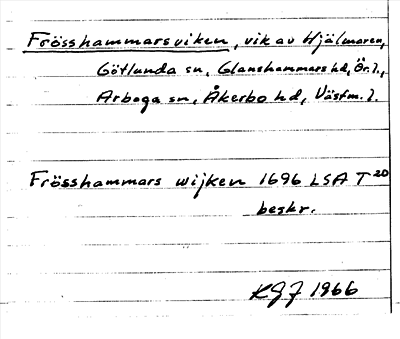 Frösshammarsviken, vik av Hjälmaren,
Götlunda sn, Glanshammars hd, Ör. l.,
Arboga sn, Åkerbo hd, Västm. l.
Frösshammars wijken 1696 LSA T 20
beskr.
KGJ 1966